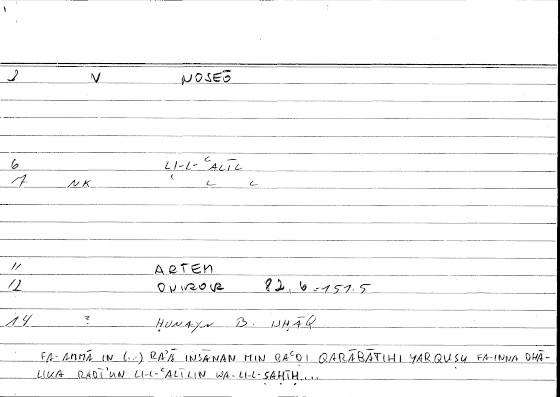 2 V NOSEŌ
6 LI-L-ʿALĪL
7 NK
11 ARTEM
12 ONIROUR 82.6=151.5
14 ? ḤUNAYN B. ISḤĀQ
FA-AMMĀ IN (...) RAʾĀ INSĀNAN MIN BAʿḌI QARĀBĀTIHI YARQUṢU FA-INNA DHĀ-
LIKA RADĪʾUN LI-L-ʿALĪLIN WA-LI-L-ṢAḤĪḤ...